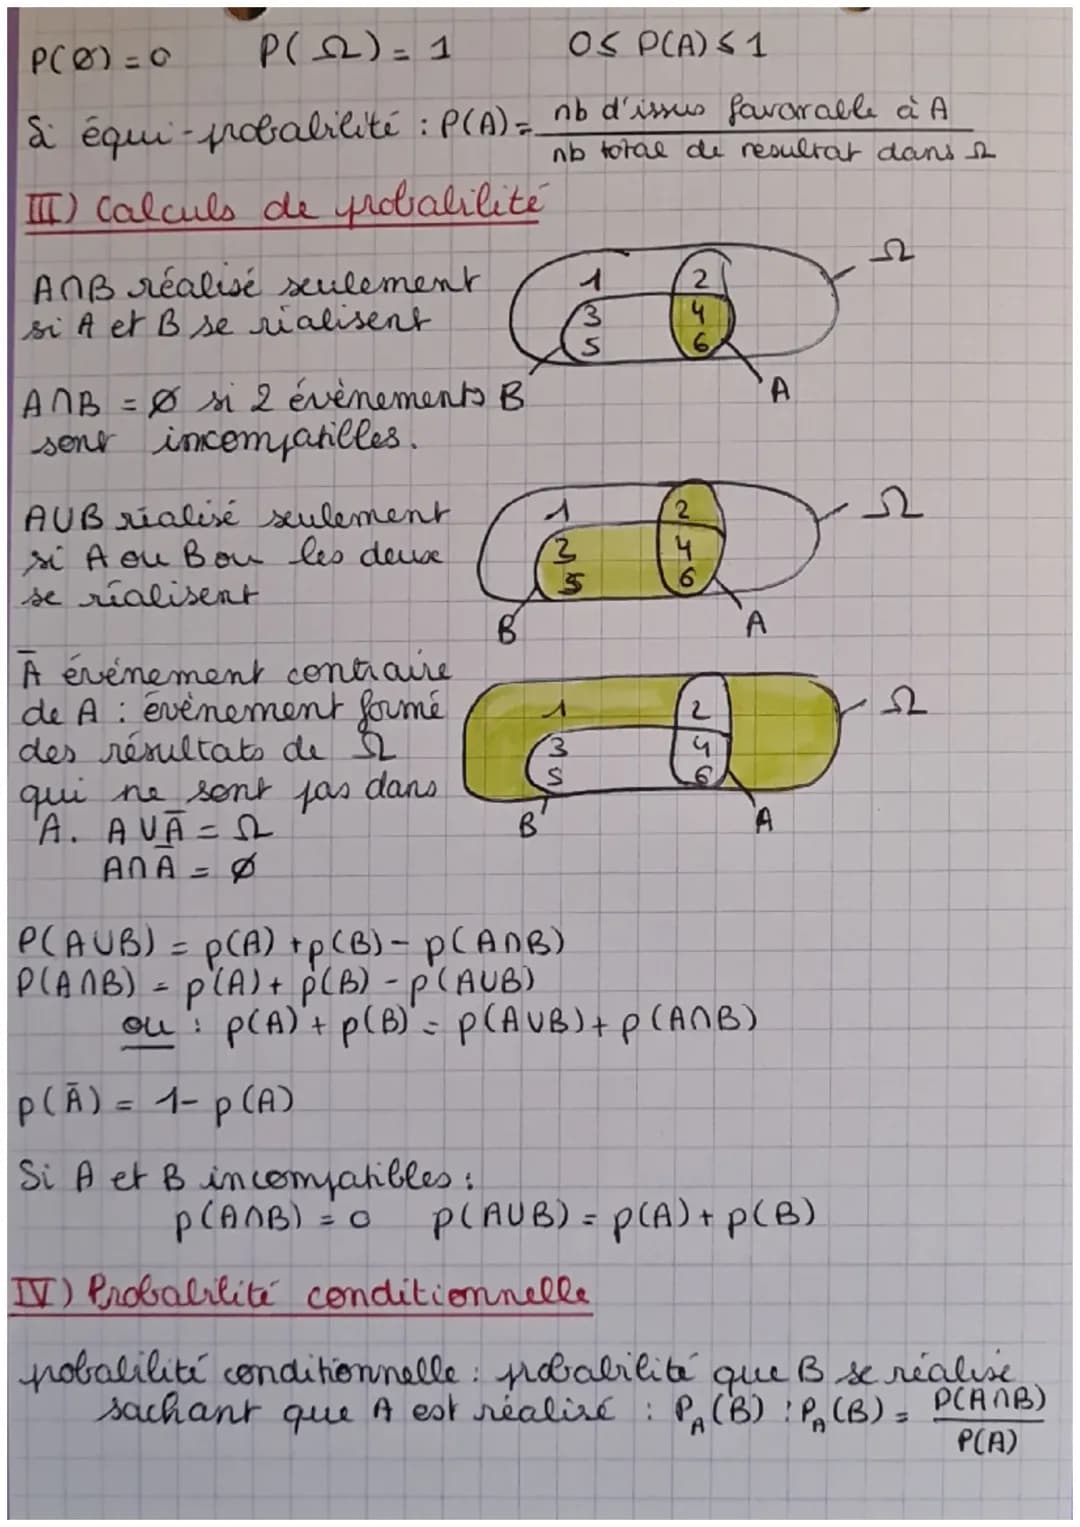 P(∅) = 0 P(Ω) = 1 0 ≤ P(A) ≤ 1
Si équi-probabilité : P(A) = nb d'issus favorable à A / nb total de resultat dans Ω
III) Calculs de probabilité
A∩B réalisé seulement
si A et B se réalisent
1 2 3 4 5 6 Ω B A
A∩B = ∅ si 2 évènements
sont incompatibles.
A∪B réalisé seulement
si A ou B ou les deux
se réalisent
1 2 3 4 5 6 Ω B A
Ā événement contraire
de A : évènement formé
des résultats de Ω
qui ne sont pas dans
A. A∪Ā = Ω
A∩Ā = ∅
1 2 3 4 5 6 Ω B A
P(A∪B) = p(A) + p(B) - p(A∩B)
P(A∩B) = p(A) + p(B) - p(A∪B)
ou : p(A) + p(B) = p(A∪B) + p(A∩B)
p(Ā) = 1 - p(A)
Si A et B incompatibles :
p(A∩B) = 0 p(A∪B) = p(A) + p(B)
IV) Probabilité conditionnelle
probabilité conditionnelle : probabilité que B se réalise
sachant que A est réalisé : P_A(B) : P_A(B) = P(A∩B) / P(A)